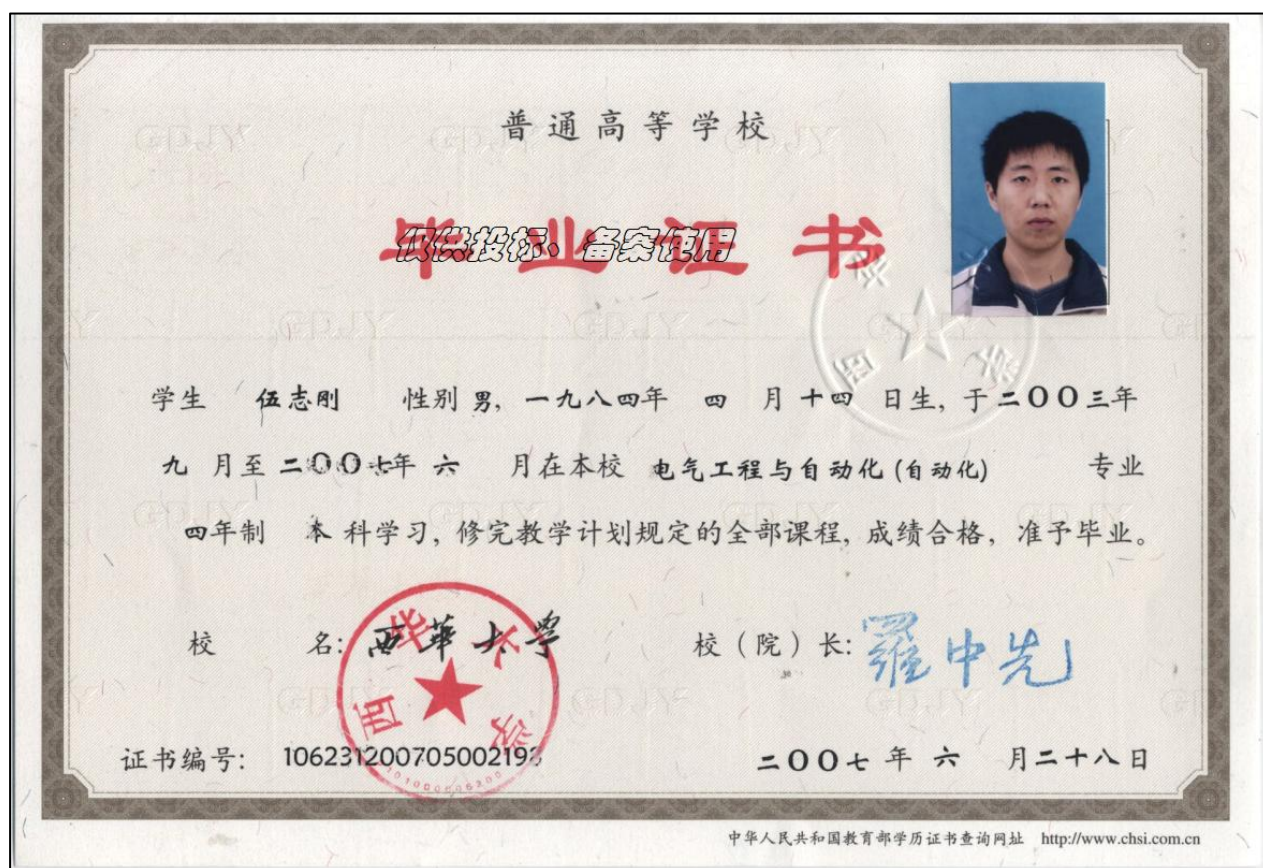 普通高等学校
毕业证书
仅供投标、备案使用
学生 伍志刚 性别 男, 一九八四年 四 月 十四 日生, 于二〇〇三年
九 月至 二〇〇七年 六 月在本校 电气工程与自动化(自动化) 专业
四年制 本 科学习, 修完教学计划规定的全部课程, 成绩合格, 准予毕业。
校 名: 西華大學
校(院)长: 羅中先
西华大学
证书编号: 106231200705002193
二〇〇七 年 六 月二十八日
中华人民共和国教育部学历证书查询网址 http://www.chsi.com.cn